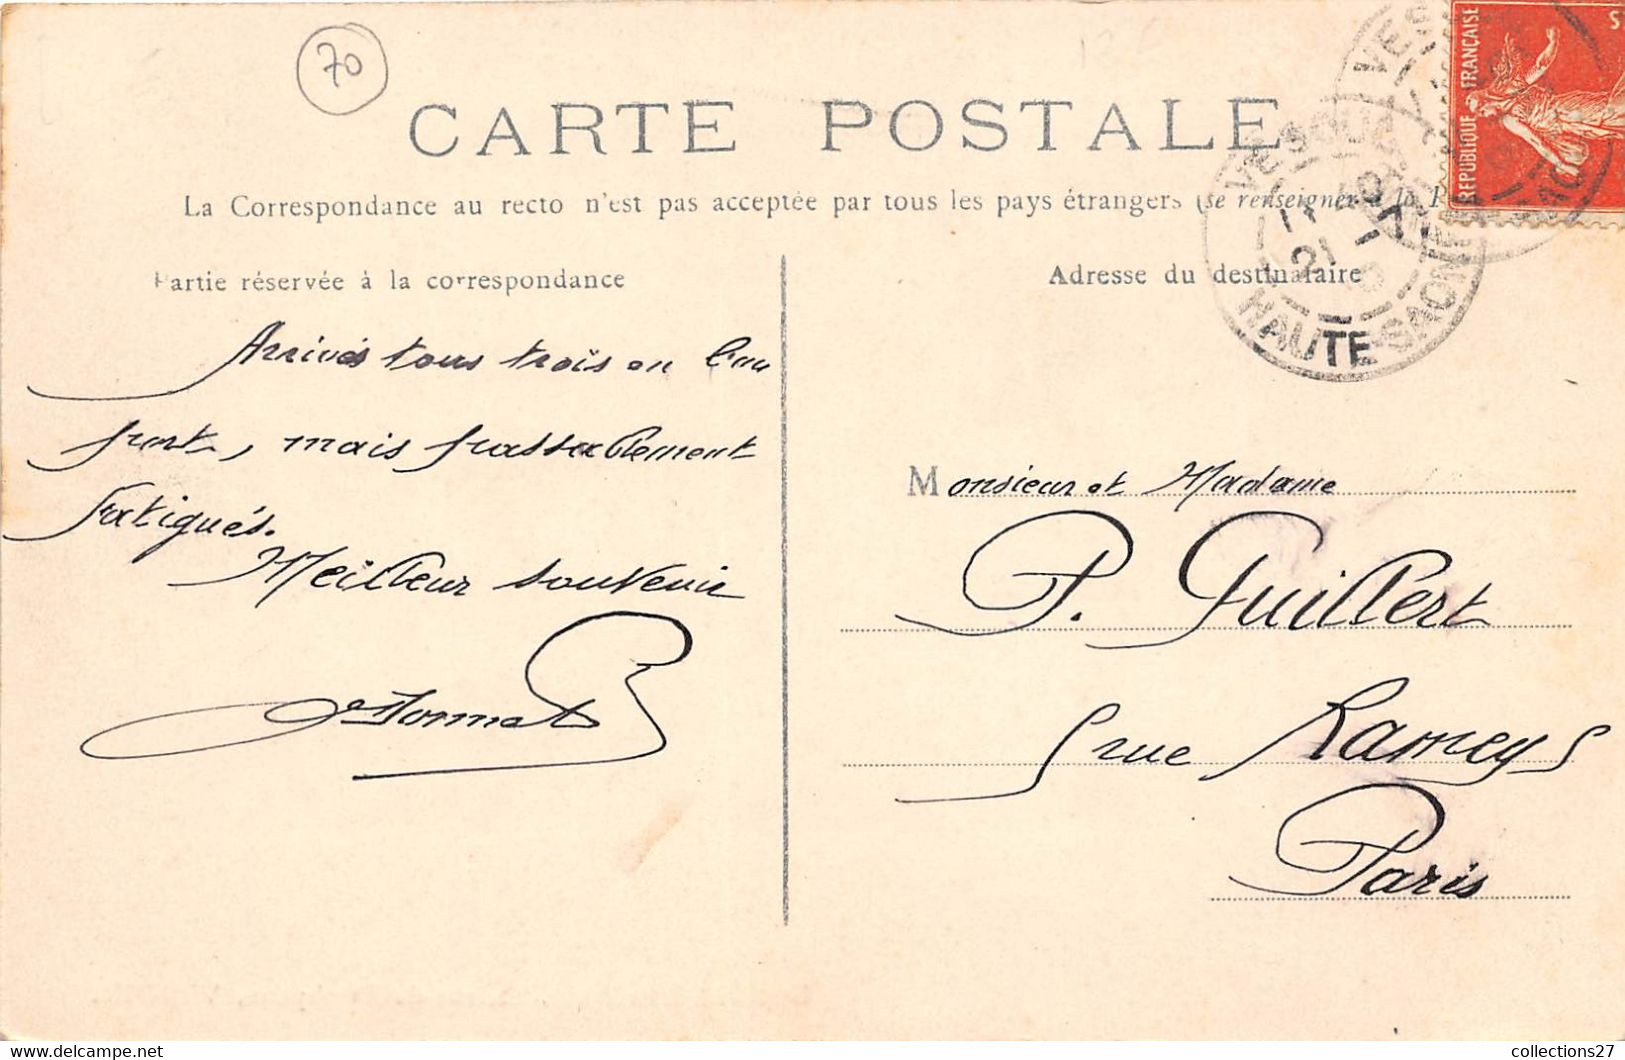 70
CARTE POSTALE
La Correspondance au recto n'est pas acceptée par tous les pays étrangers (se renseigner à la
Partie réservée à la correspondance
Adresse du destinataire
Arrivés tous trois en bon
port, mais passablement
fatigués.
Meilleur souvenir
Monsieur et Madame
P. Guillert
rue Ramey
Paris
REPUBLIQUE FRANÇAISE
VESOUL
HAUTE SAONE
collections27